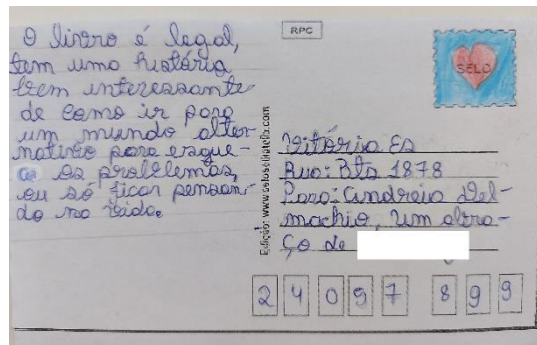 O livro é legal,
tem uma história
bem interessante
de como ir para
um mundo alter-
nativo para esque-
ce os problemas,
ou só ficar pensan-
do na vida.
RPC
SELO
Edição: www.seloseletelia.com
Vitória Es
Rua: Bta 1878
Para: Andreia Del-
machio, um abra-
ço de
24097 899